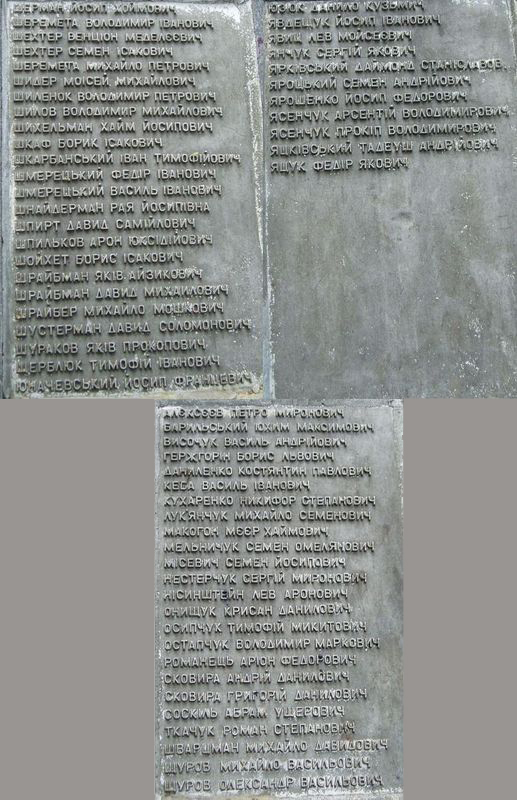 ШЕРМАН ЙОСИП ХАЙМОВИЧ
ШЕРЕМЕТА ВОЛОДИМИР ІВАНОВИЧ
ШЕХТЕР ВЕНЦІОН МЕДЕЛЄЄВИЧ
ШЕХТЕР СЕМЕН ІСАКОВИЧ
ШЕРЕМЕТА МИХАЙЛО ПЕТРОВИЧ
ШИДЕР МОІСЕЙ МИХАЙЛОВИЧ
ШИЛЕНОК ВОЛОДИМИР ПЕТРОВИЧ
ШИЛОВ ВОЛОДИМИР МИХАЙЛОВИЧ
ШИХЕЛЬМАН ХАЙМ ЙОСИПОВИЧ
ШКАФ БОРИК ІСАКОВИЧ
ШКАРБАНСЬКИЙ ІВАН ТИМОФІЙОВИЧ
ШМЕРЕЦЬКИЙ ФЕДІР ІВАНОВИЧ
ШМЕРЕЦЬКИЙ ВАСИЛЬ ІВАНОВИЧ
ШНАЙДЕРМАН РАЯ ЙОСИПІВНА
ШПИРТ ДАВИД САМІЙЛОВИЧ
ШПИЛЬКОВ АРОН ЮКСІДІЙОВИЧ
ШОЙХЕТ БОРИС ІСАКОВИЧ
ШРАЙБМАН ЯКІВ АЙЗИКОВИЧ
ШРАЙБМАН ДАВИД МИХАЙЛОВИЧ
ШРАЙБЕР МИХАЙЛО МОШКОВИЧ
ШУСТЕРМАН ДАВИД СОЛОМОНОВИЧ
ШУРАКОВ ЯКІВ ПРОКОПОВИЧ
ЩЕРБЛЮК ТИМОФІЙ ІВАНОВИЧ
ЮНАЧЕВСЬКИЙ ЙОСИП ФРАНЦЕВИЧ
ДАНИЛО КУЗЬМИЧ
ЯВДЕЩУК ЙОСИП ІВАНОВИЧ
ЯВИЧ ЛЕВ МОЙСЄЄВИЧ
ЯНЧУК СЕРГІЙ ЯКОВИЧ
ЯРКІВСЬКИЙ ДАЙМОНД СТАНІСЛАВОВ
ЯРОЦЬКИЙ СЕМЕН АНДРІЙОВИЧ
ЯРОШЕНКО ЙОСИП ФЕДОРОВИЧ
ЯСЕНЧУК АРСЕНТІЙ ВОЛОДИМИРОВИЧ
ЯСЕНЧУК ПРОКІП ВОЛОДИМИРОВИЧ
ЯШКІВСЬКИЙ ТАДЕУШ АНДРІЙОВИЧ
ЯЩУК ФЕДІР ЯКОВИЧ
АЛЄКСЄЄВ ПЕТРО МИРОНОВИЧ
БАРИЛЬСЬКИЙ ЮХИМ МАКСИМОВИЧ
ВИСОЧУК ВАСИЛЬ АНДРІЙОВИЧ
ГЕРЖГОРІН БОРИС ЛЬВОВИЧ
ДАНИЛЕНКО КОСТЯНТИН ПАВЛОВИЧ
КЕБА ВАСИЛЬ ІВАНОВИЧ
КУХАРЕНКО НИКИФОР СТЕПАНОВИЧ
ЛУК'ЯНЧУК МИХАЙЛО СЕМЕНОВИЧ
МАКОГОН МЕЄР ХАЙМОВИЧ
МЕЛЬНИЧУК СЕМЕН ОМЕЛЯНОВИЧ
МІСЕВИЧ СЕМЕН ЙОСИПОВИЧ
НЕСТЕРЧУК СЕРГІЙ МИРОНОВИЧ
НІСИНШТЕЙН ЛЕВ АРОНОВИЧ
ОНИЩУК КРИСАН ДАНИЛОВИЧ
ОСИПЧУК ТИМОФІЙ МИКИТОВИЧ
ОСТАПЧУК ВОЛОДИМИР МАРКОВИЧ
РОМАНЕЦЬ АРІОН ФЕДОРОВИЧ
СКОВИРА АНДРІЙ ДАНИЛОВИЧ
СКОВИРА ГРИГОРІЙ ДАНИЛОВИЧ
СОСКІЛЬ АБРАМ УЩЕРОВИЧ
ТКАЧУК РОМАН СТЕПАНОВИЧ
ШВАРЦМАН МИХАЙЛО ДАВИДОВИЧ
ЩУРОВ МИХАЙЛО ВАСИЛЬОВИЧ
ЩУРОВ ОЛЕКСАНДР ВАСИЛЬОВИЧ